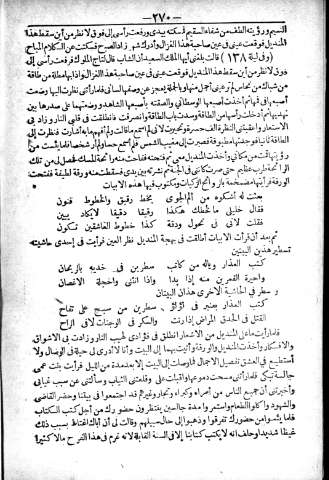 — ٢٧٠ —
النسيم ورؤيته ألطف من شفاء السقيم فمسكته بيدي ورفعت رأسي إلى فوق لأنظر من أين سقط هذا
المنديل فوقعت عيني في عين صاحبة هذا الغزال وأدرك شهرزاد الصباح فسكتت عن الكلام المباح
(وفي ليلة ١٣٨) قالت بلغني أيها الملك السعيد أن الشاب قال لتاج الملوك ورفعت رأسي إلى
فوق لأنظر من أين سقط هذا المنديل فوقعت عيني في عين صاحبة هذا الغزال وإذا بها مطلة من طاقة
من شباك من نحاس لم تر عيني أجمل منها وبالجملة يعجز عن وصفها لساني فلما رأتني نظرت إليها وضعت
أصبعها في فمها ثم أخذت أصبعها الوسطاني وألصقته بأصبعها الشاهد ووضعتهما على صدرها بين
نهديها ثم أدخلت رأسها من الطاقة وسدت باب الطاقة وانصرفت فانطلقت في قلبي النار وزاد بي
الاستعار وأعقبتني النظرة ألف حسرة وتحيرت لأني لم أسمع ما قالت ولم أفهم ما به أشارت فنظرت إلى
الطاقة ثانيا فوجدتها مطبوقة فصبرت إلى مغيب الشمس فلم أسمع حسا ولم أر شخصا فلما يئست من
رؤيتها قمت من مكاني وأخذت المنديل معي ثم فتحته ففاحت منه رائحة المسك فحصل لي من تلك
الرائحة طرب عظيم حتى صرت كأنني في الجنة ثم نشرته بين يدي فسقطت منه ورقة لطيفة ففتحت
الورقة فرأيتها مضمخة بالروائح الزكيات ومكتوب فيها هذه الأبيات
بعثت له أشكوه من ألم الجوى   بخط رقيق والخطوط فنون
فقال خليلي ما لخطك هكذا   رقيقا دقيقا لا يكاد يبين
فقلت لأني في نحول ودقة   كذا خطوط العاشقين تكون
ثم بعد أن قرأت الأبيات أطلقت في بهجة المنديل نظر العين فرأيت في إحدى حاشيته
تسطير هذين البيتين
كتب العذار ويا له من كاتب   سطرين في خديه بالريحان
واحيرة القمرين منه إذا بدا   وإذا انثنى واخجلة الأغصان
وسطر في الحاشية الأخرى هذان البيتان
كتب العذار بعنبر في لؤلؤ   سطرين من سبج على تفاح
القتل في الحدق المراض إذا رنت   والسكر في الوجنات لا في الراح
فلما رأيت ما على المنديل من الأشعار انطلق في فؤادي لهيب النار وزادت بي الأشواق
والأفكار وأخذت المنديل والورقة وأتيت بهما إلى البيت وأنا لا أدري لي حيلة في الوصال ولا
أستطيع في العشق تفصيل الاجمال فما وصلت إلى البيت إلا بعد مدة من الليل فرأيت بنت عمي
جالسة تبكي فلما رأتني مسحت دموعها وأقبلت علي وقلعتني الثياب وسألتني عن سبب غيابي
وأخبرتني أن جميع الناس من أمراء وكبراء وتجار وغيرهم قد اجتمعوا في بيتنا وحضر القاضي
والشهود وأكلوا الطعام واستمروا مدة جالسين ينتظرون حضورك من أجل كتب الكتاب
فلما يئسوا من حضورك تفرقوا وذهبوا إلى حال سبيلهم وقالت لي إن أباك اغتاظ بسبب ذلك
غيظا شديدا وحلف أنه لا يكتب كتابنا إلا في السنة القابلة لأنه غرم في هذا الفرح مالا كثيرا